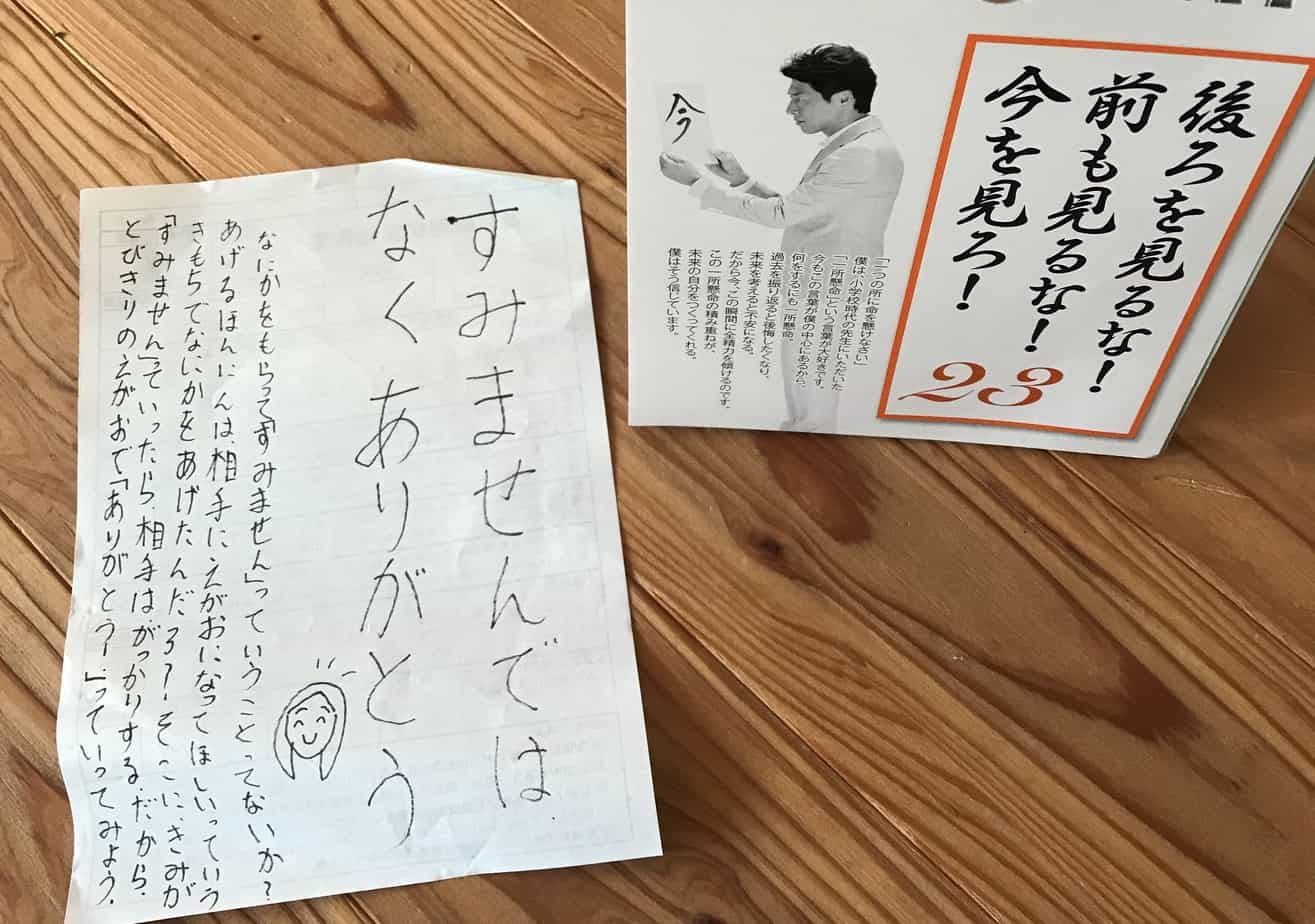 すみませんでは
なくありがとう
なにかをもらって「すみません」っていうことってないか?
あげるほんにんは、相手にえがおになってほしいっていう
きもちでなにかをあげたんだろう。そこに、きみが
「すみません」っていったら、相手はがっかりする。だから、
とびきりのえがおで「ありがとうー!」っていってみよう。
後ろを見るな!
前も見るな!
今を見ろ!
23
今
「一つの所に命を懸けなさい」
僕は、小学校時代の先生にいただいた
「一所懸命」という言葉が大好きです。
今もこの言葉が僕の中心にあるから、
何をするにも一所懸命。
過去を振り返ると後悔したくなり、
未来を考えると不安になる。
だから今、この瞬間に全精力を傾けるのです。
この一所懸命の積み重ねが、
未来の自分をつくってくれる。
僕はそう信じています。